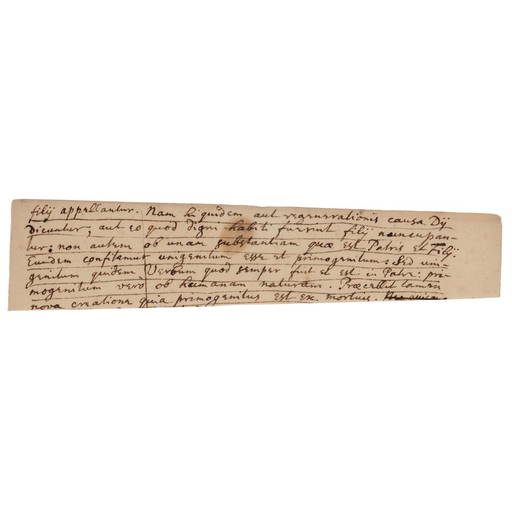 filij appellantur. Nam siquidem aut regenerationis causa Dij
Dicuntur, aut eo quod digni habiti fuerint filij nuncupan-
tur: non autem ob unam substantiam quæ est Patris et Filij.
Eundem confitemur unigenitum esse et primogenitum: Sed uni-
genitum quidem Verbum quod semper fuit et est in Patre: pri-
mogenitum vero ob humanam naturam. Præcellit tamen
nova creatione quia primogenitus est ex mortuis.